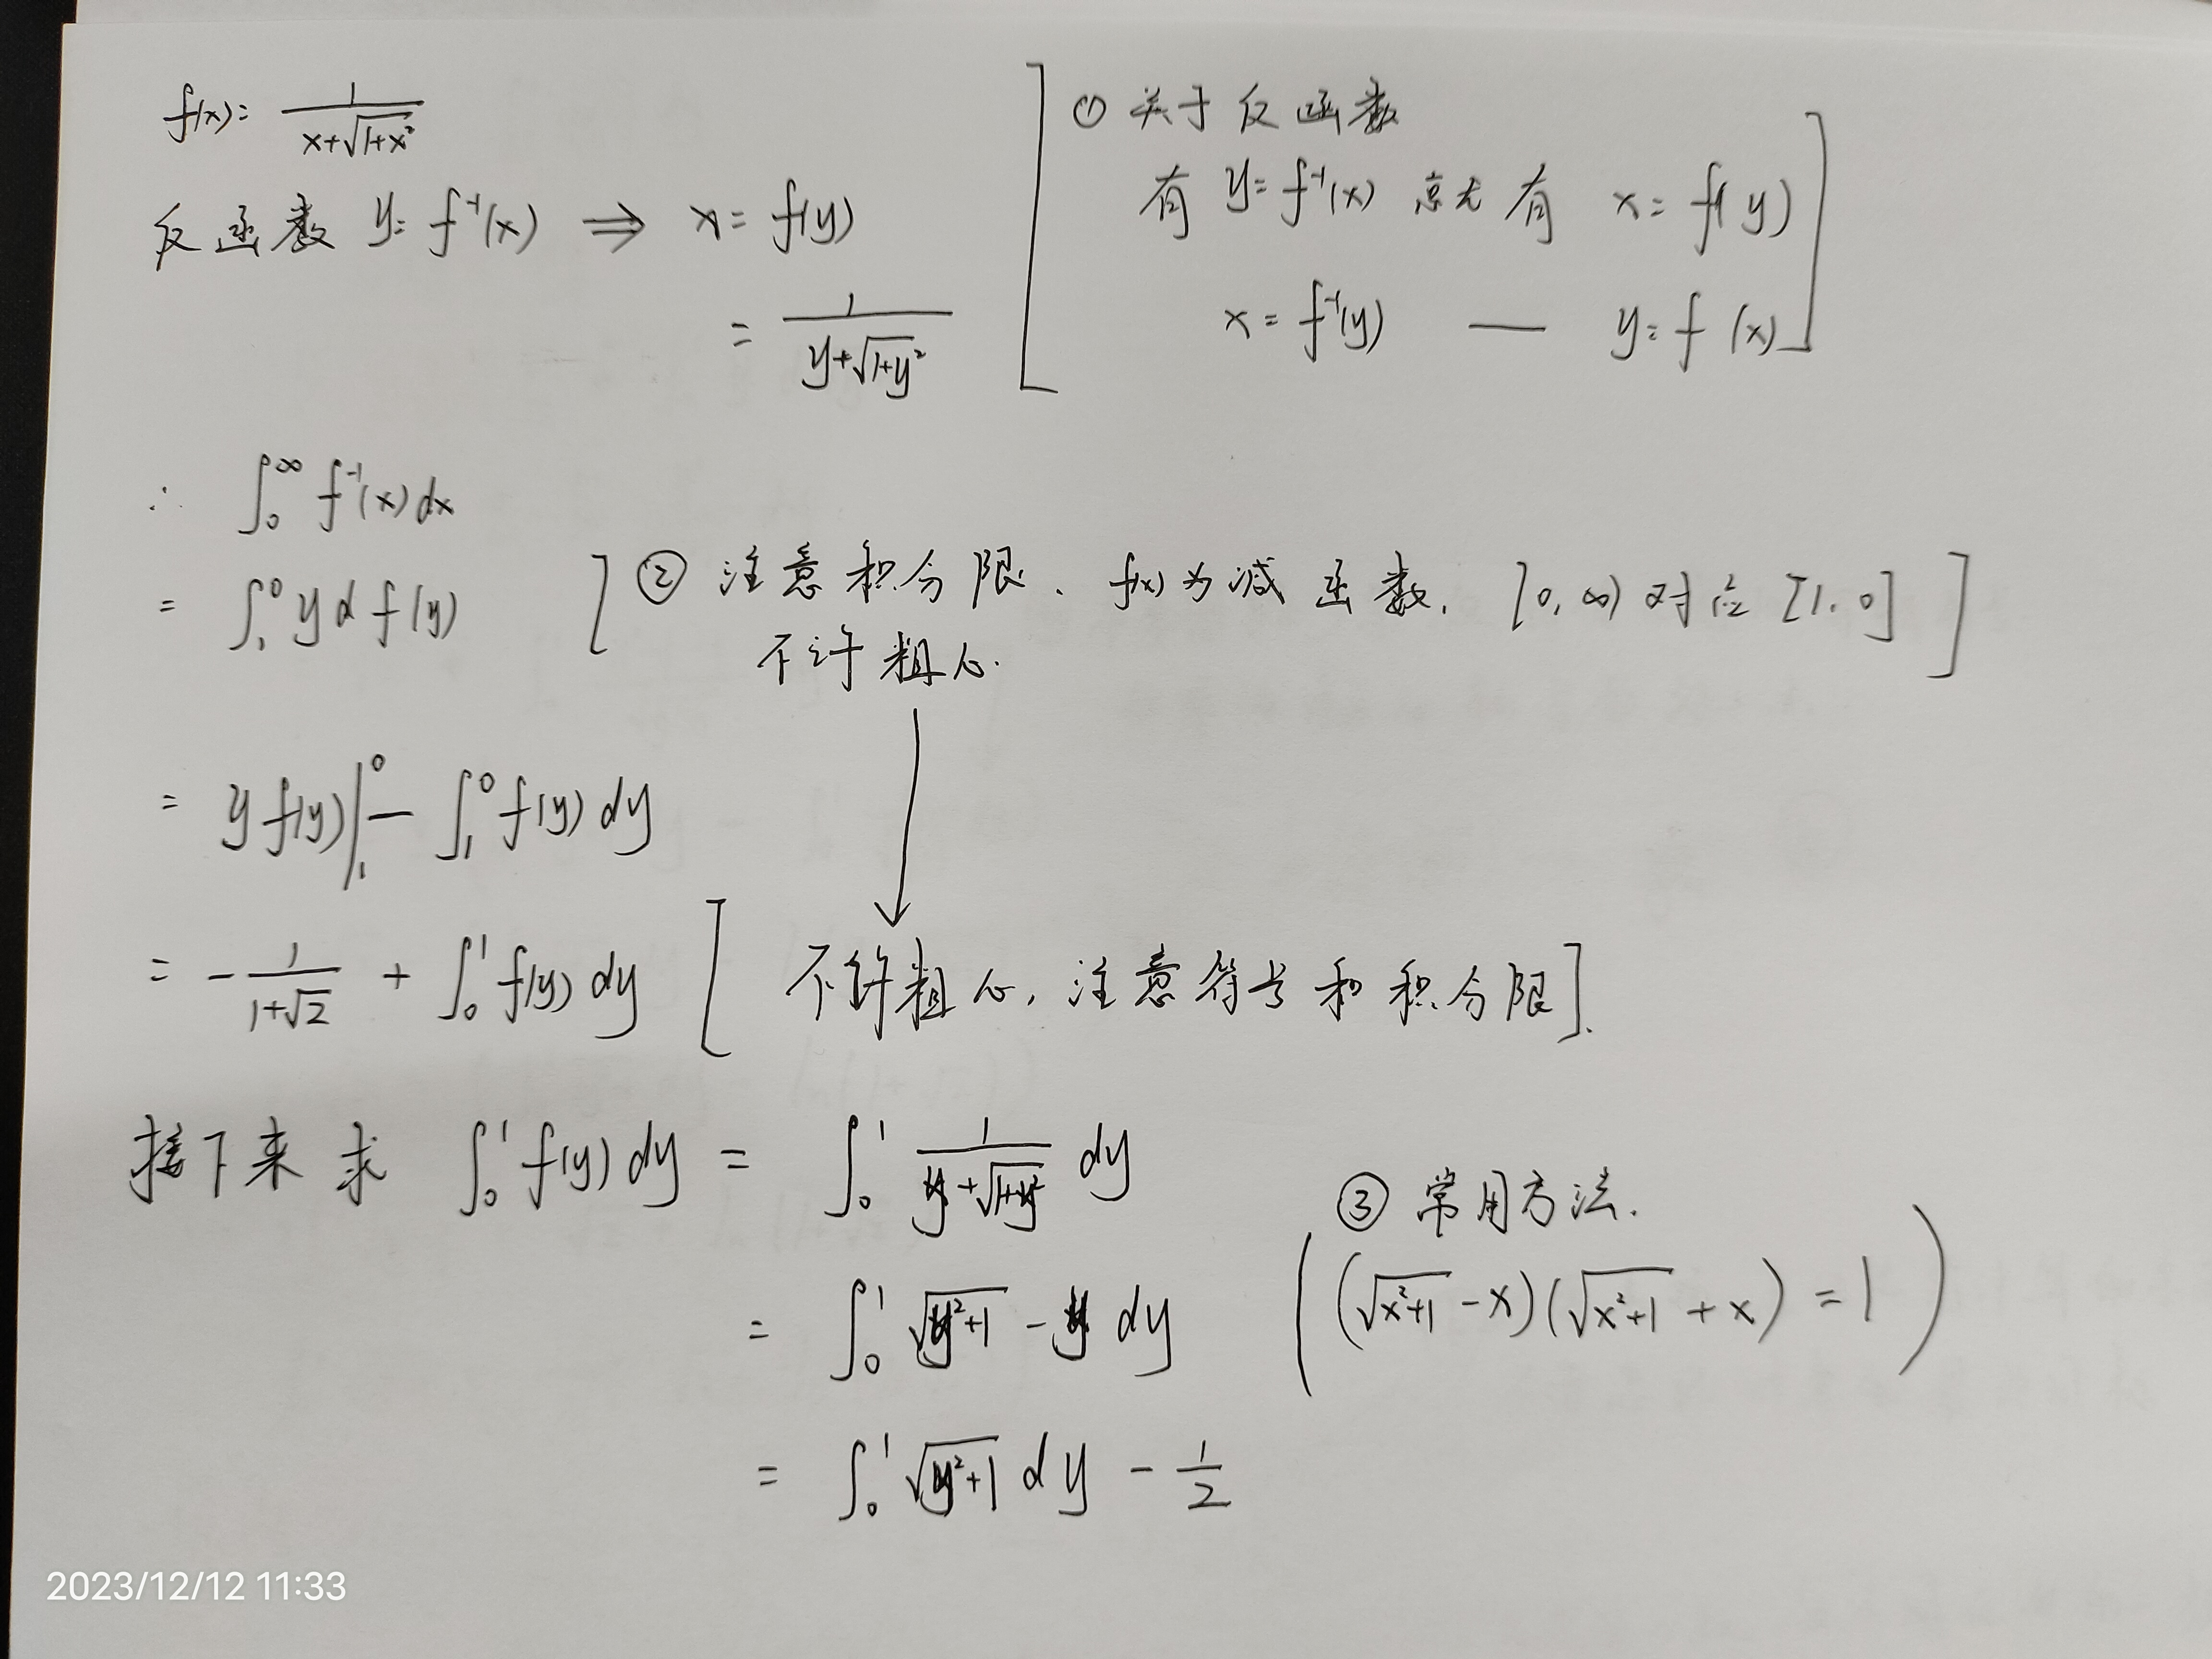 f(x)= 1/(x+√(1+x²))
反函数 y= f⁻¹(x) ⟹ x= f(y)
= 1/(y+√(1+y²))
[① 关于反函数
有 y= f⁻¹(x) 有 x= f(y)
x= f⁻¹(y) — y= f(x)]
∴ ∫₀^∞ f⁻¹(x)dx
= ∫₁⁰ y d f(y)
[② 注意积分限. f(x)为减函数, [0, ∞) 对应 [1, 0]]
不许粗心.
= y f(y)|₁⁰ − ∫₁⁰ f(y) dy
= − 1/(1+√2) + ∫₀¹ f(y) dy [不许粗心, 注意符号和积分限].
接下来求 ∫₀¹ f(y) dy = ∫₀¹ 1/(y+√(1+y²)) dy
= ∫₀¹ √(y²+1) − y dy
= ∫₀¹ √(y²+1) dy − 1/2
③ 常用方法.
((√(x²+1) − x)(√(x²+1) + x) = 1)
2023/12/12 11:33